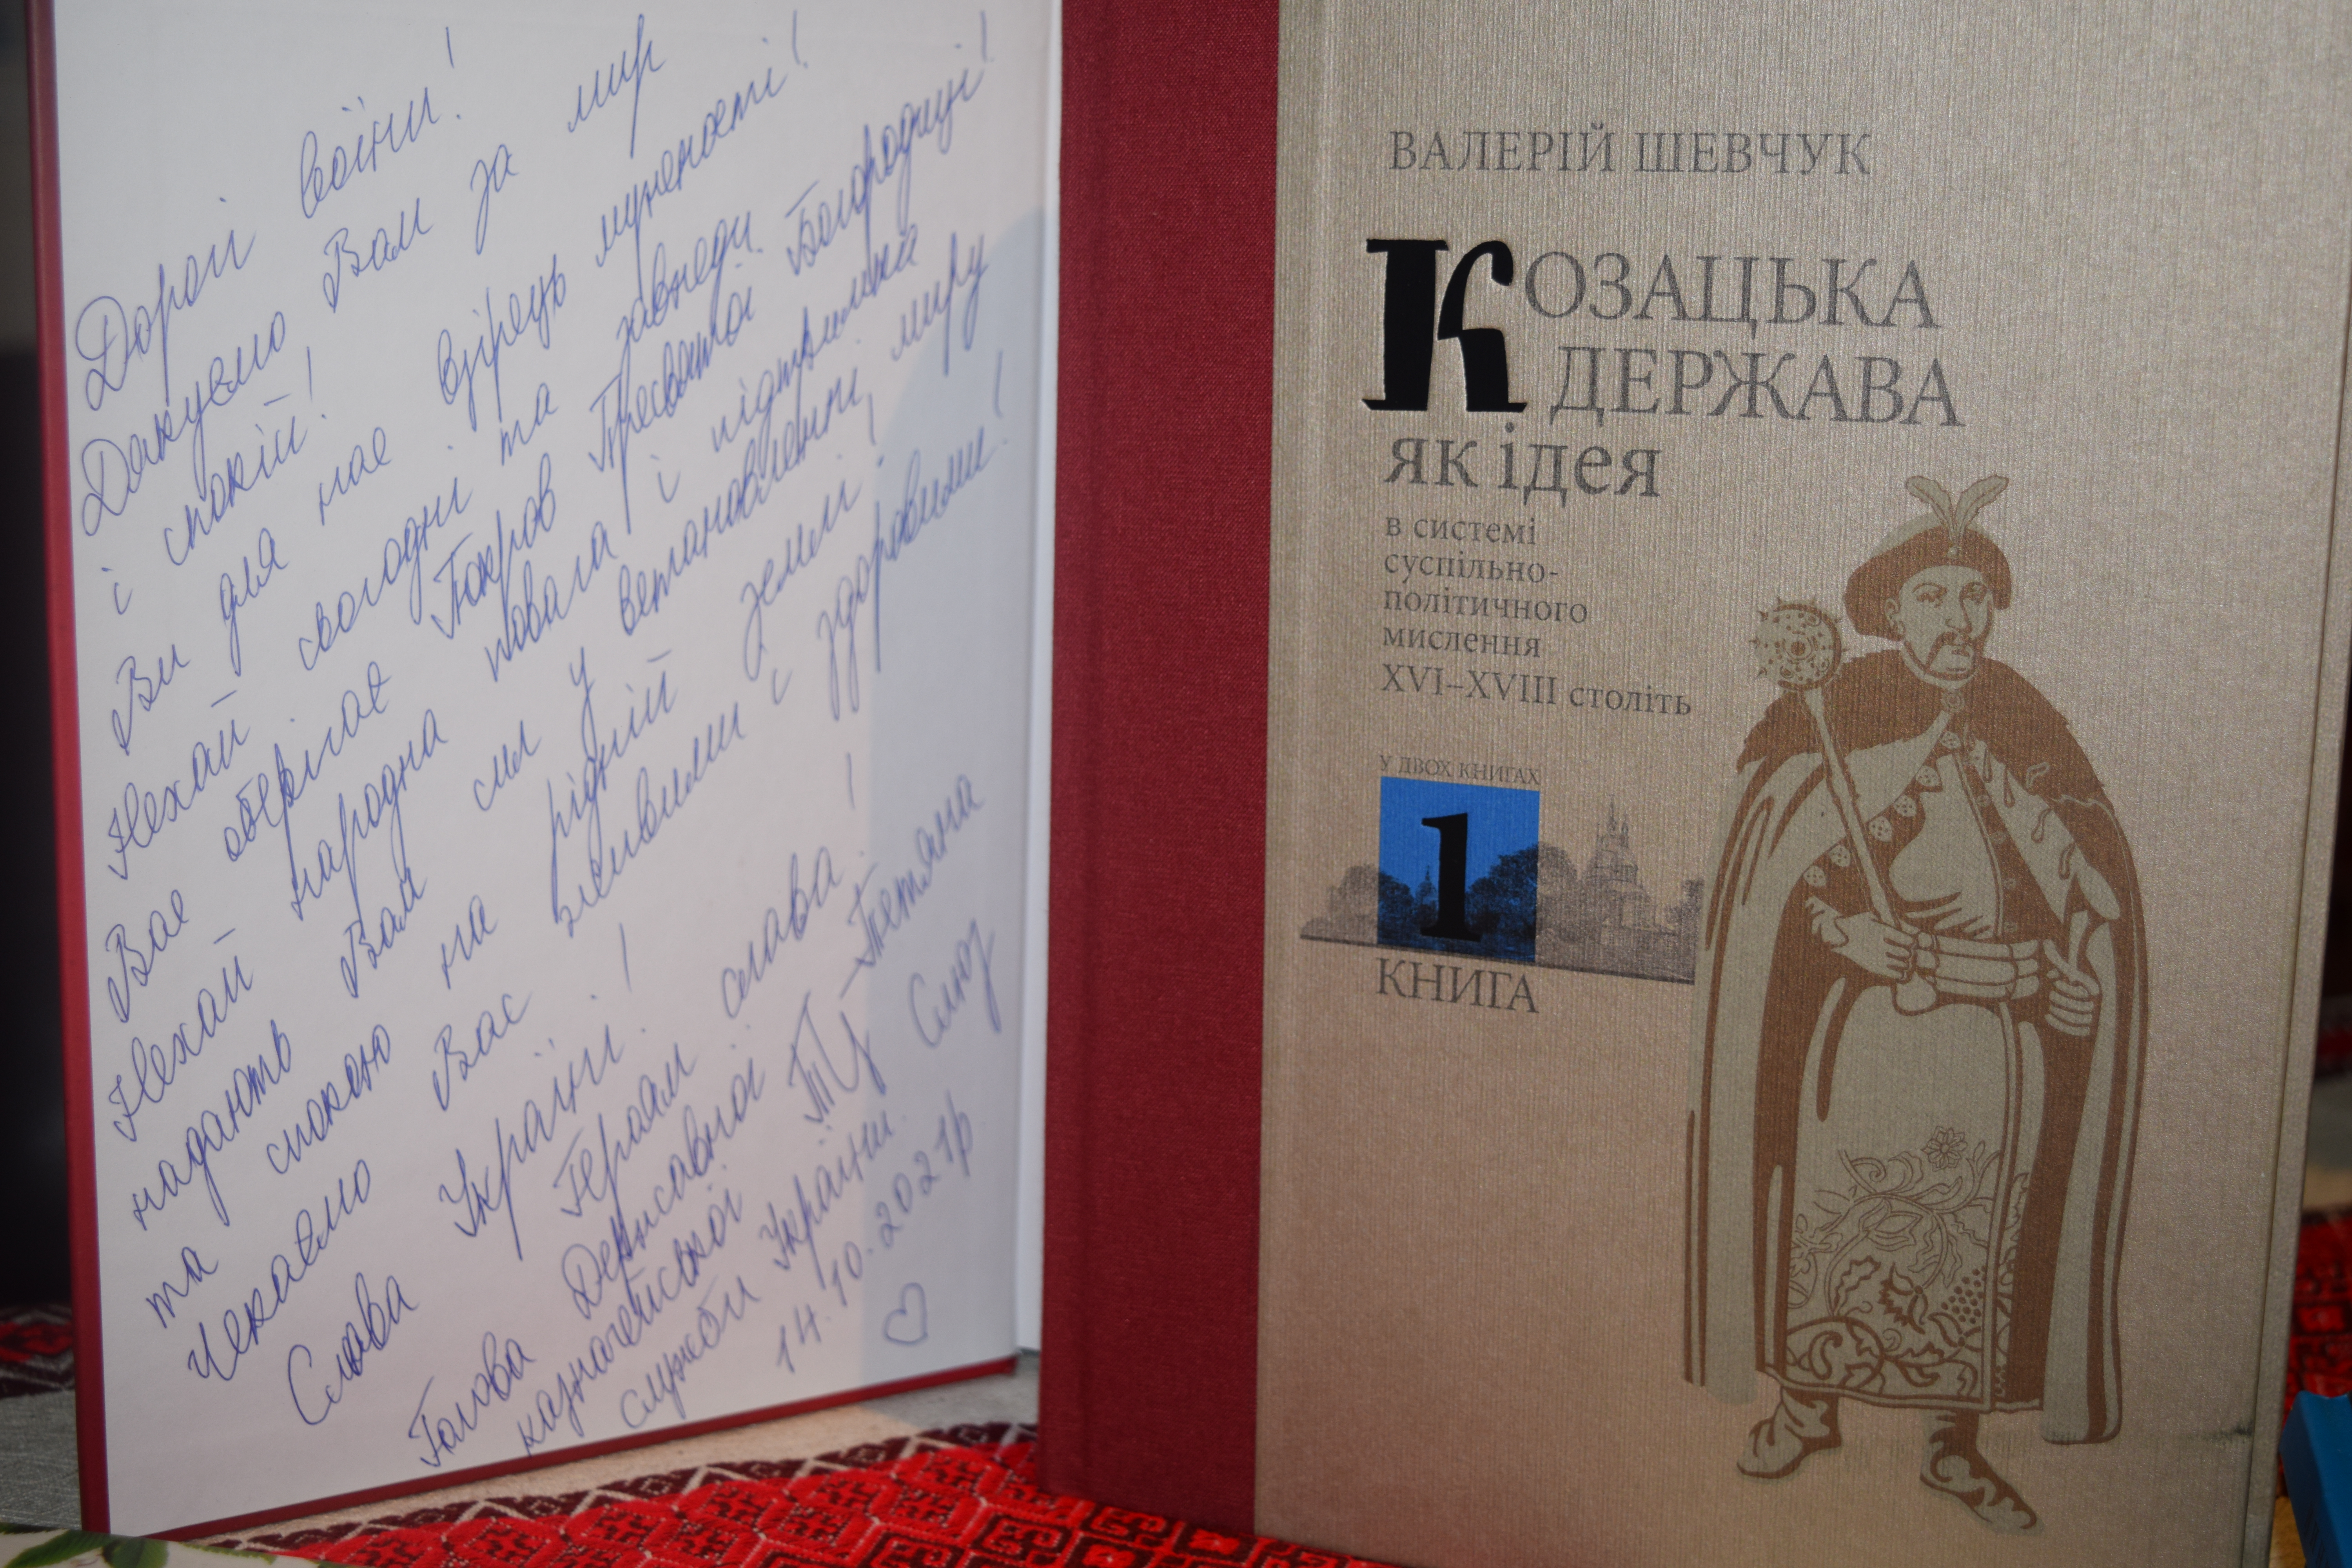 Дорогі воїни!
Дякуємо Вам за мир
і спокій!
Ви для нас взірець мужності!
Нехай сьогодні та завжди
Вас оберігає Покров Пресвятої Богородиці!
Нехай народна повага і підтримка
надають Вам сил у встановленні миру
та спокою на рідній землі!
Чекаємо Вас живими і здоровими!
Слава Україні! Героям слава!
Голова Державної
казначейської
служби України
Тетяна
Слюз
14.10.2021р
ВАЛЕРІЙ ШЕВЧУК
КОЗАЦЬКА
ДЕРЖАВА
як ідея
в системі
суспільно-
політичного
мислення
XVI–XVIII століть
У ДВОХ КНИГАХ
1
КНИГА